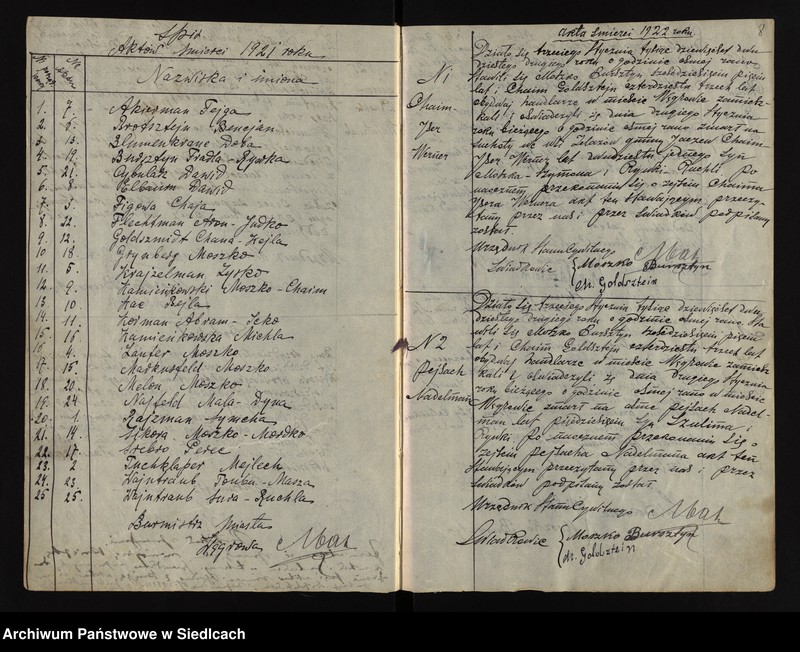 Spis
Aktów śmierci 1921 roku
Nazwiska i imiona
1. 7. Akierman Fejga
2. 9. Brofsztejn Bencjan
3. 13. Blumenkranc Doba
4. 19. Bursztyn Fradla-Rywka
5. 21. Cybulak Dawid
6. 8. Elbaum Dawid
7. 3. Figowa Chaja
8. 22. Flechtman Aron-Judko
9. 12. Goldszmidt Chana-Hejla
10 18. Grynberg Moszko
11. 5. Krajzelman Lejko
12. 9. Kamieńkowski Moszko-Chaim
13 10. Kac Bejla
14. 11. Kosman Abram-Icko
15. 16. Kamieńkowska Michla
4. Laufer Moszko
17. 15. Markusfeld Moszko
18. 20. Melon Moszko
19. 24. Najfeld Mala-Dyna
20. 1. Rajzman Symcha
21. 14. Sikora Moszko-Mordko
22. 17. Srebro Perec
23. 2 Tuchklaper Majlech
24. 23. Wajntraub Tauba-Masza
25 25. Wajntraub Enda-Ruchla
Burmistrz Miasta
Węgrowa
8
Akta śmierci 1922 roku
N 1
Chaim-
Jser
Werner
Działo się trzeciego Stycznia tysiąc dziewięćset dwu-
dziestego drugiego roku o godzinie ósmej rano.
Stawili się Moszko Bursztyn sześćdziesięciu pięciu
lat i Chaim Goldsztejn czterdziestu trzech lat
obydwaj handlarze w mieście Węgrowie zamiesz-
kali i oświadczyli iż dnia drugiego Stycznia
roku bieżącego o godzinie ósmej rano zmarł na
suchoty we wsi gminy Jaczew Chaim
Jser Werner lat dwudziestu jednego syn
Moszka-Szymona i Rywki-Ruchli Po
naocznem przekonaniu się o zejściu Chaima
Jsera Wernera akt ten stawającym przeczy-
tany przez nas i przez świadków podpisany
został.
Urzędnik Stanu Cywilnego
Świadkowie { Moszko Bursztyn
ch. Goldsztein
N 2
Pejsach
Nadelman
Działo się trzeciego Stycznia tysiąc dziewięćset dwu-
dziestego drugiego roku o godzinie ósmej rano. Sta-
wili się Moszko Bursztyn sześćdziesięciu pięciu
lat i Chaim Goldsztejn czterdziestu trzech lat
obydwaj handlarze w mieście Węgrowie zamiesz-
kali i oświadczyli iż dnia drugiego Stycznia
roku bieżącego o godzinie ósmej rano w mieście
Węgrowie zmarł na astmę Pejsach Nadel-
man lat pięćdziesięciu syn Szulima i
Rywki Po naocznem przekonaniu się o
zejściu Pejsacha Nadelmana akt ten
stawającym przeczytany przez nas i przez
świadków podpisany został.
Urzędnik Stanu Cywilnego
Świadkowie { Moszko Bursztyn
ch. Goldsztein
Archiwum Państwowe w Siedlcach